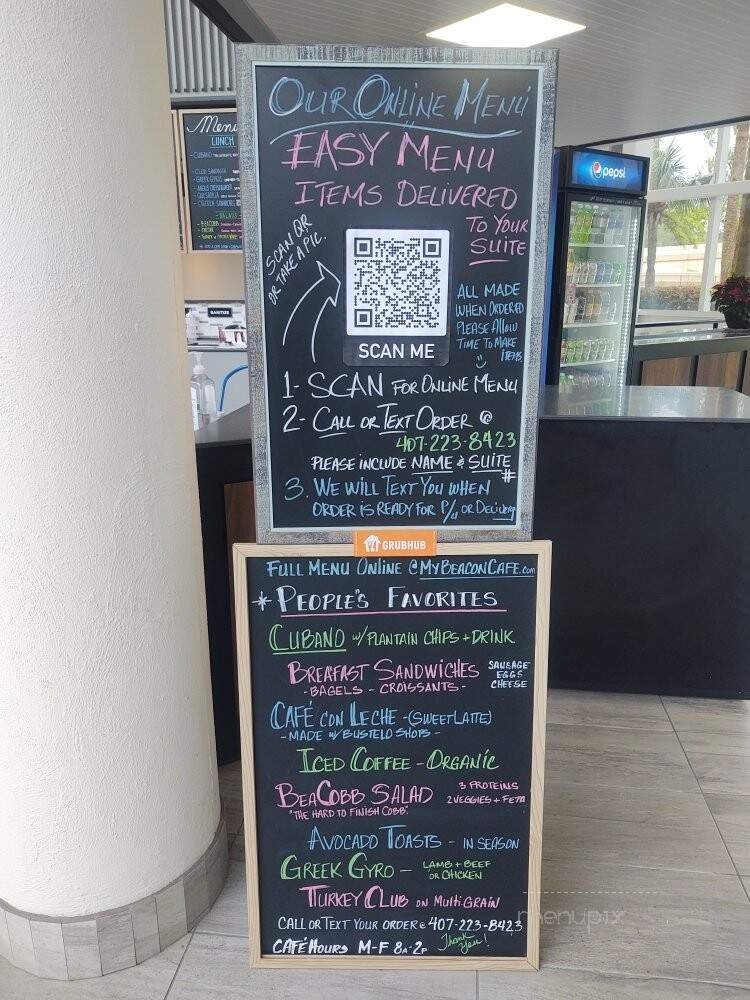 Menu
LUNCH
SANITIZE
pepsi
OUR ONLINE MENU
EASY MENU
ITEMS DELIVERED
TO YOUR
SUITE
SCAN QR
OR TAKE A PIC.
ALL MADE
WHEN ORDERED
PLEASE ALLOW
TIME TO MAKE
ITEMS
SCAN ME
1- SCAN FOR ONLINE MENU
2- CALL OR TEXT ORDER @
407-223-8423
PLEASE INCLUDE NAME & SUITE #
3. WE WILL TEXT YOU WHEN
ORDER IS READY FOR P/U OR DELIVERY
GRUBHUB
FULL MENU ONLINE @MYBEACONCAFE.com
* PEOPLE'S FAVORITES
CUBANO W/PLANTAIN CHIPS + DRINK
BREAFAST SANDWICHES
- BAGELS - CROISSANTS -
SAUSAGE
EGGS
CHEESE
CAFÉ CON LECHE -(SWEET LATTE)
- MADE W/ BUSTELO SHOTS -
ICED COFFEE - ORGANIC
BEACOBB SALAD
3 PROTEINS
2 VEGGIES + FETA
"THE HARD TO FINISH COBB"
AVOCADO TOASTS - IN SEASON
GREEK GYRO -
LAMB + BEEF
OR CHICKEN
TURKEY CLUB ON MULTIGRAIN
CALL OR TEXT YOUR ORDER @ 407-223-8423
CAFÉ HOURS M-F 8A-2P
Thank You!
menupix